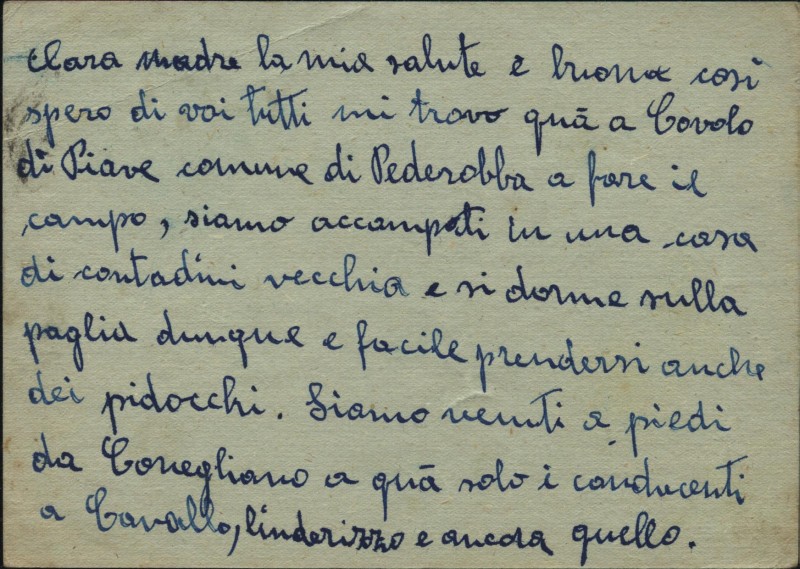 Clara madre la mia salute è buona così
spero di voi tutti mi trovo quā a Covolo
di Piave comune di Pederobba a fare il
campo, siamo accampati in una casa
di contadini vecchia e si dorme sulla
paglia dunque e facile prendersi anche
dei pidocchi. Siamo venuti a piedi
da Conegliano a quā solo i conducenti
a Cavallo, linderizzo e ancora quello.